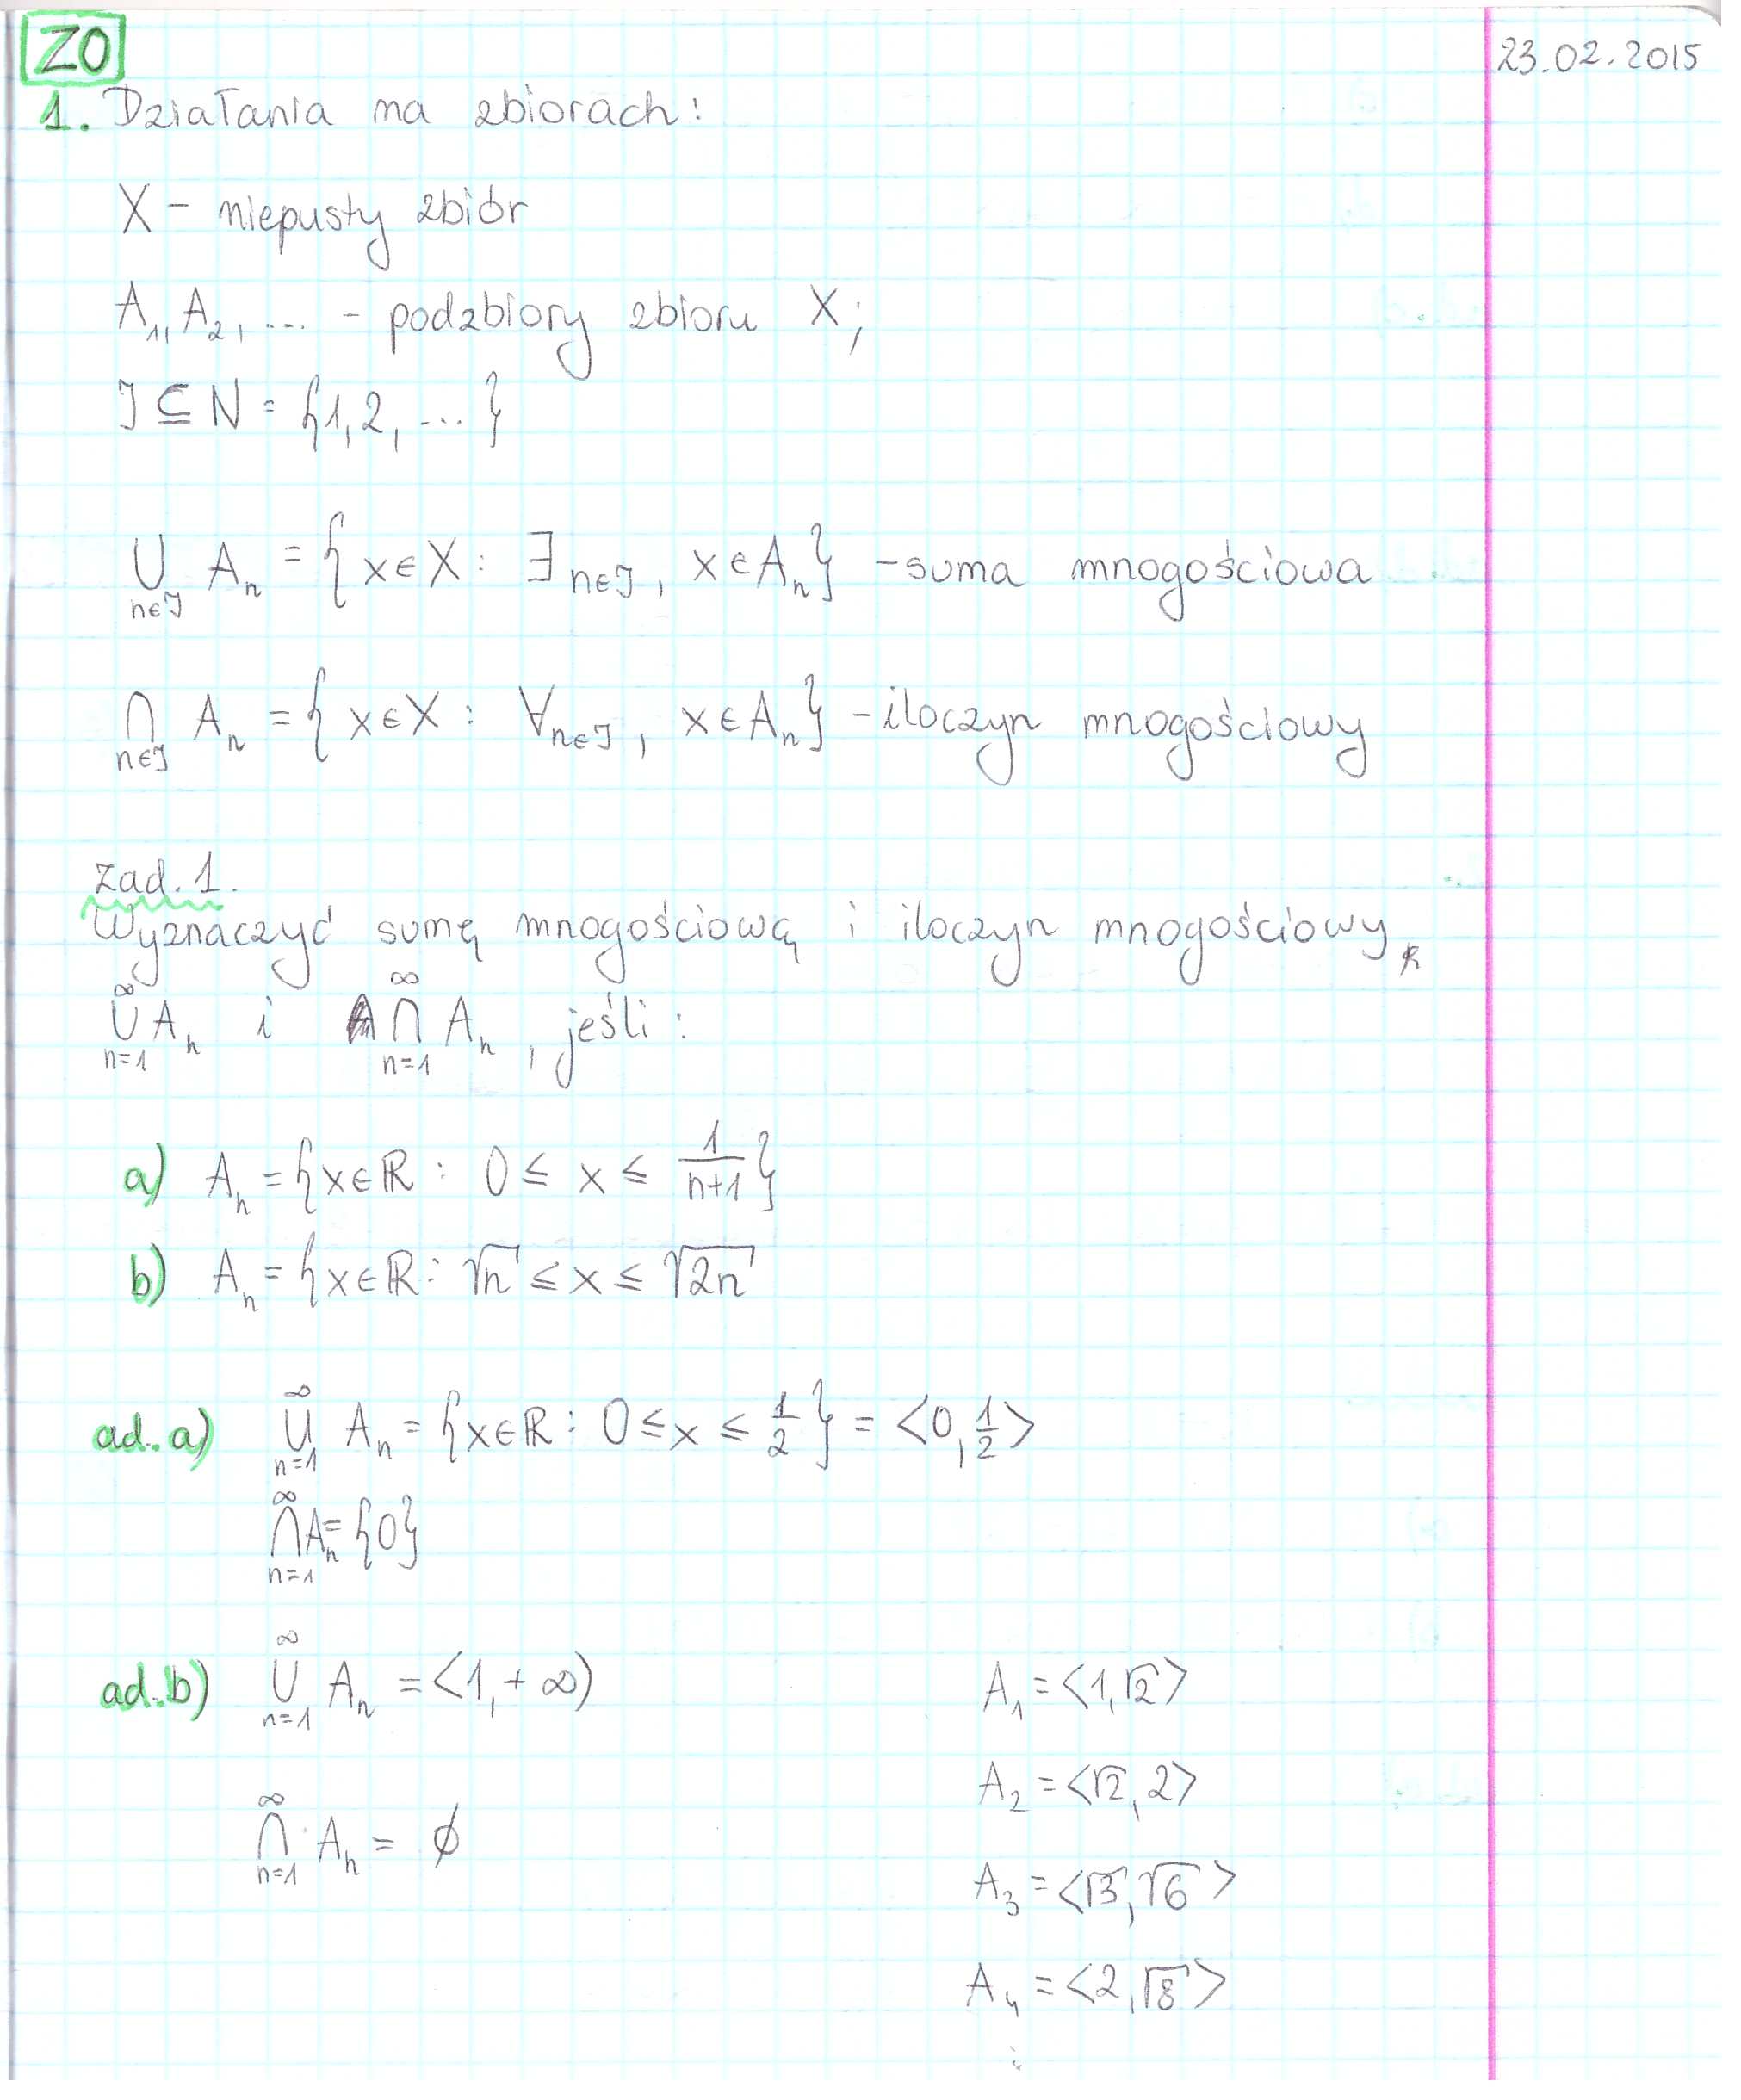 ZO
23.02.2015
1. Działania na zbiorach:
X – niepusty zbiór
A₁, A₂, ... – podzbiory zbioru X;
J ⊆ N = {1, 2, ...}
⋃_{n∈J} A_n = {x∈X : ∃_{n∈J}, x∈A_n} – suma mnogościowa
⋂_{n∈J} A_n = {x∈X : ∀_{n∈J}, x∈A_n} – iloczyn mnogościowy
Zad. 1.
Wyznaczyć sumę mnogościową i iloczyn mnogościowy
⋃_{n=1}^{∞} A_n i ⋂_{n=1}^{∞} A_n, jeśli:
a) A_n = {x∈ℝ : 0 ≤ x ≤ 1/(n+1)}
b) A_n = {x∈ℝ : √n ≤ x ≤ √(2n)
ad. a) ⋃_{n=1}^{∞} A_n = {x∈ℝ : 0 ≤ x ≤ 1/2} = <0, 1/2>
⋂_{n=1}^{∞} A_n = {0}
ad. b) ⋃_{n=1}^{∞} A_n = <1, +∞)
⋂_{n=1}^{∞} A_n = ∅
A₁ = <1, √2>
A₂ = <√2, 2>
A₃ = <√3, √6>
A₄ = <2, √8>
⋮